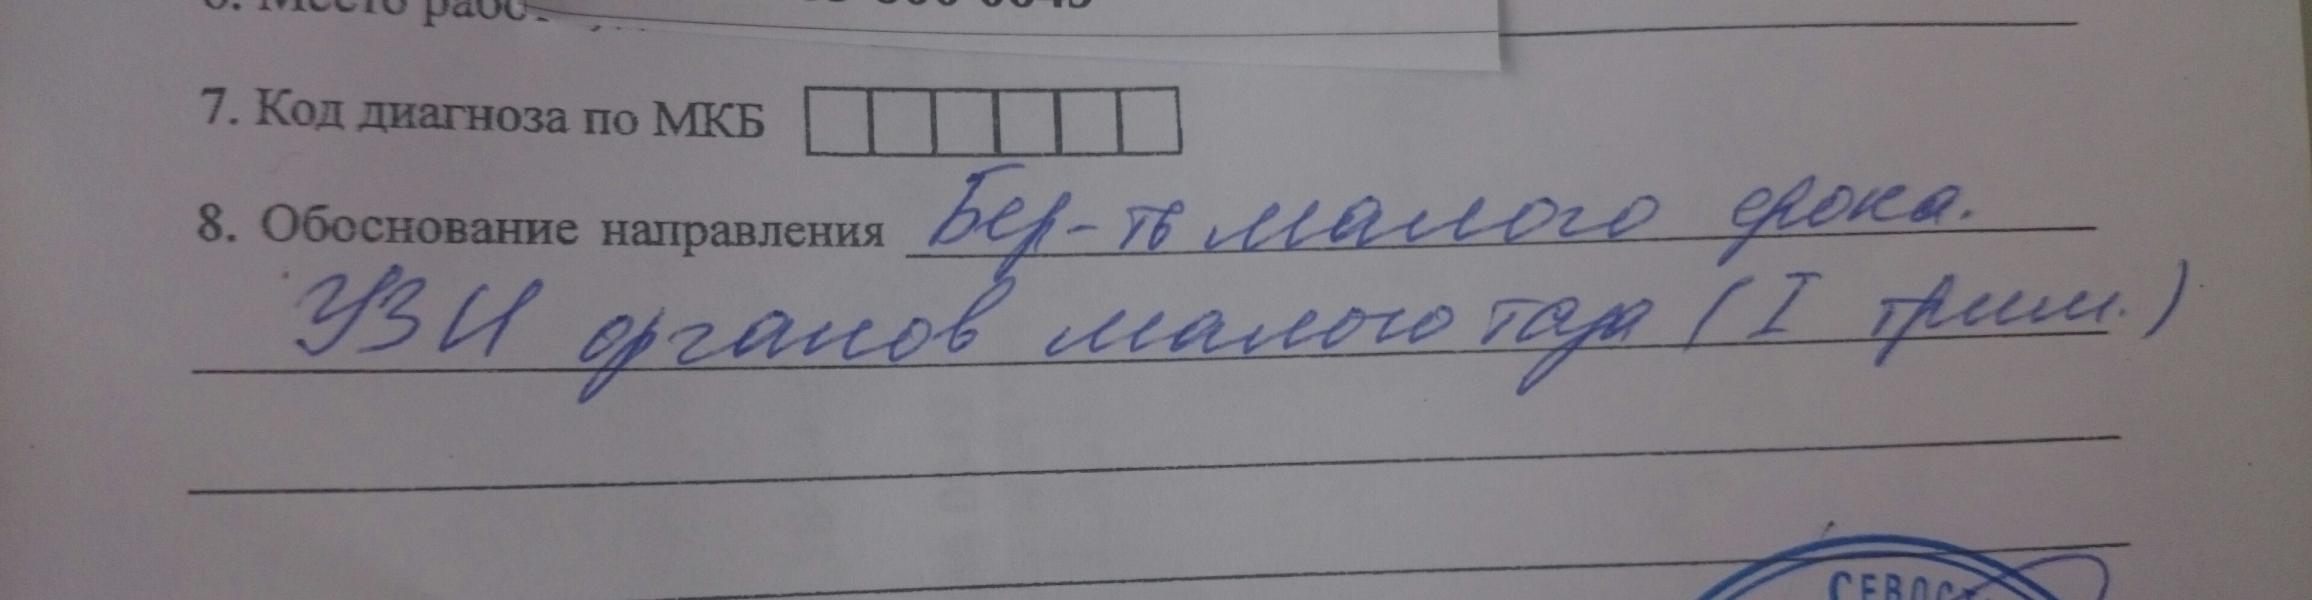 6. Место рабо
7. Код диагноза по МКБ
8. Обоснование направления Бер-ть малого срока.
УЗИ органов малого таза (I трим.)
СЕВОСТ